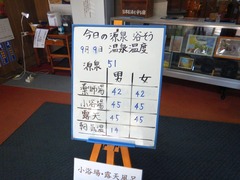 今日の源泉 浴そう
9月9日 温泉温度
源泉 51
男 女
薬師場 42 42
小浴場 45 45
露天 45 45
朝気温 19
小浴場・露天風呂